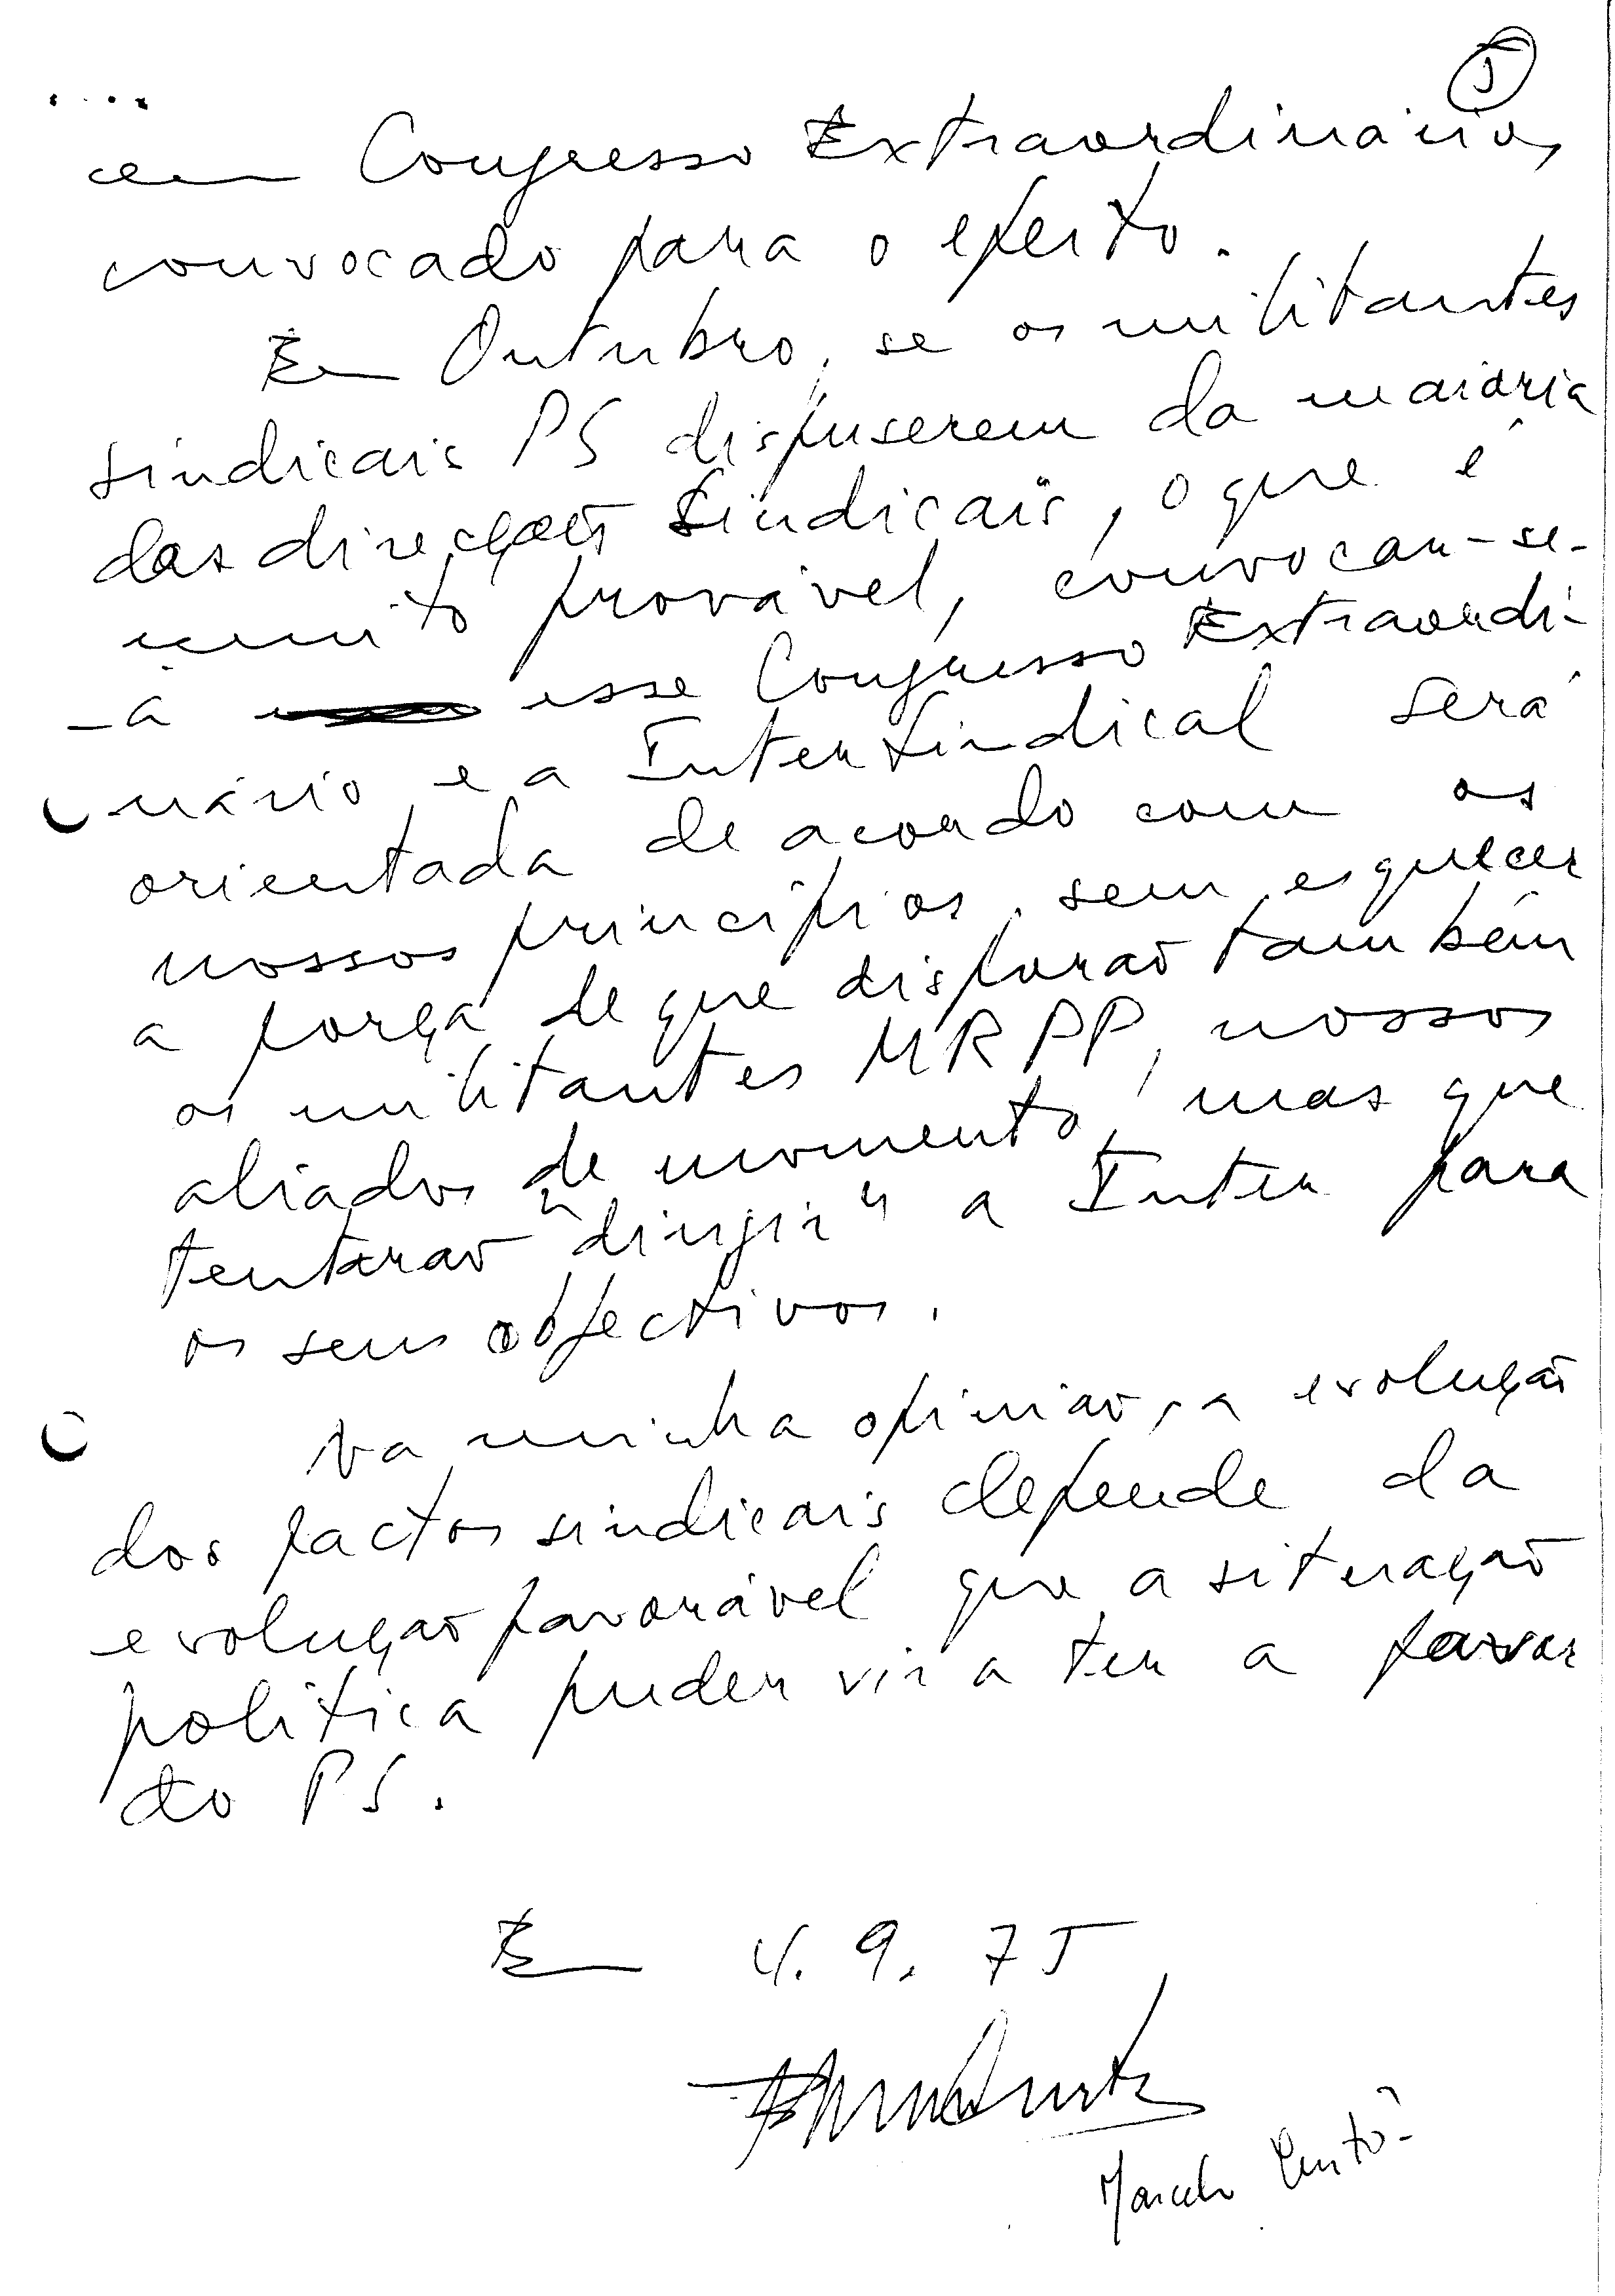 5
....
em Congresso Extraordinário,
convocado para o efeito.
Em Outubro, se os militantes
sindicais PS dispuserem da maioria
das direcções sindicais, o que é
muito provável, convocar-se-
-á esse Congresso Extraordi-
nário e a Intersindical será
orientada de acordo com os
nossos princípios, sem esquecer
a força de que disporão também
os militantes MRPP, nossos
aliados de momento, mas que
tentarão "dirigir" a Inter para
os seus objectivos.
Na minha opinião, a evolução
dos factos sindicais depende da
evolução favorável que a situação
política puder vir a ter a favor
do PS.
Em 4.9.75
Marcelo